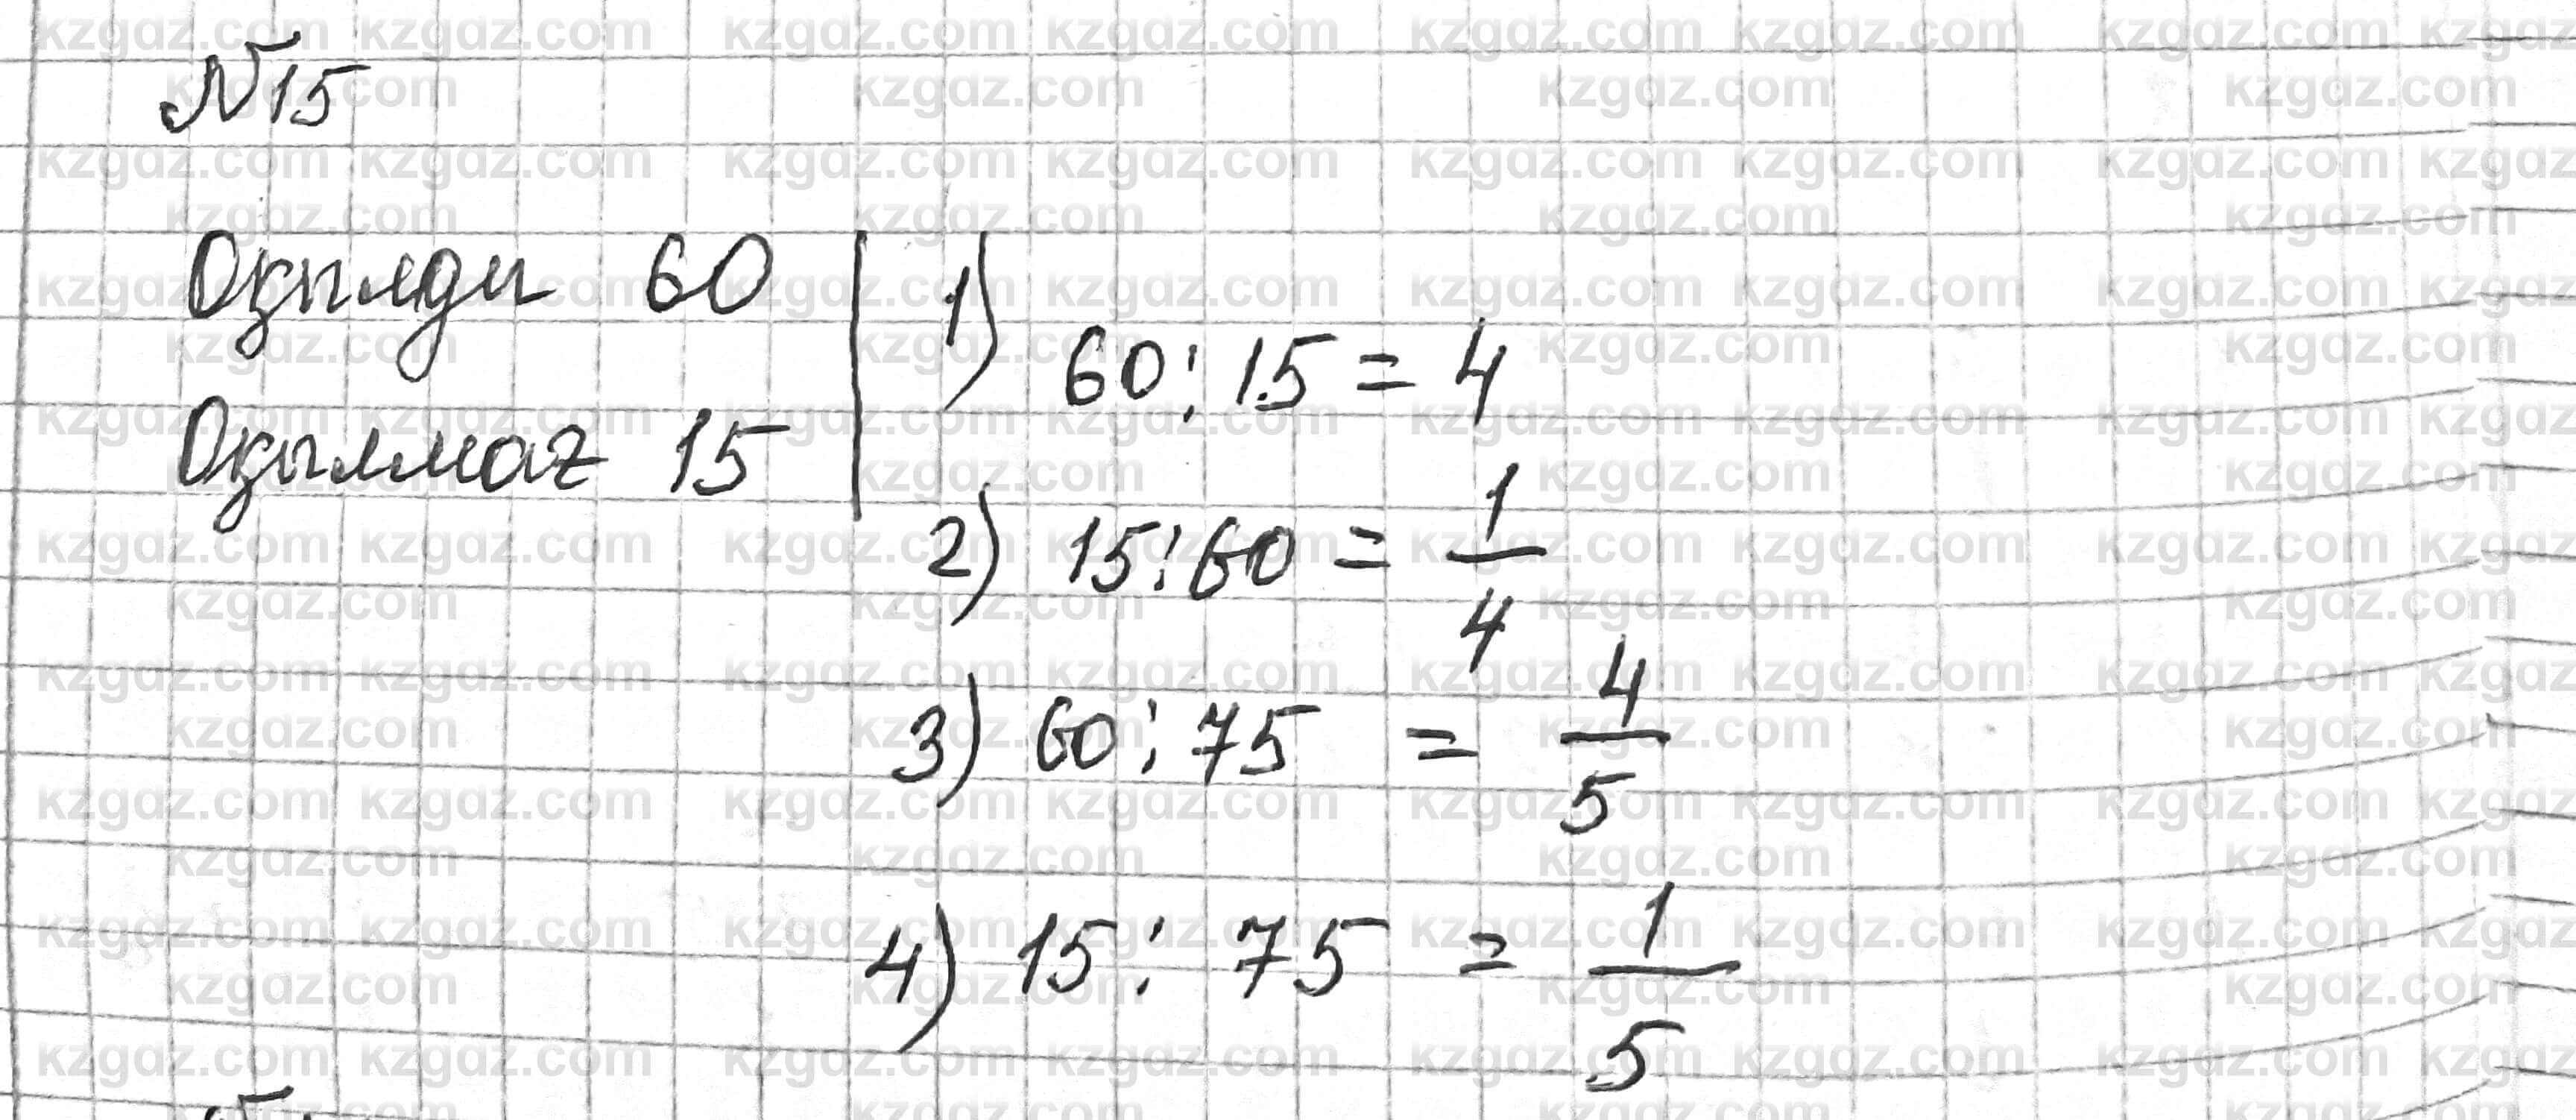 №15
Оқылды 60
Оқылмаг 15
1) 60:15 = 4
2) 15:60 = 1/4
3) 60:75 = 4/5
4) 15:75 = 1/5
kzgdz.com